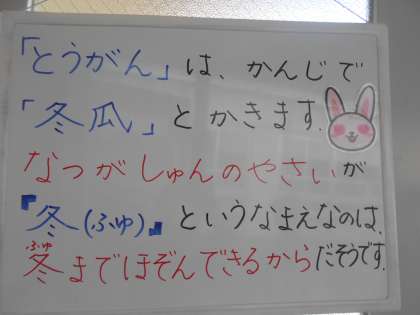 「とうがん」は、かんじで
「冬瓜」とかきます.
なつがしゅんのやさいが
『冬(ふゆ)』というなまえなのは、
冬までほぞんできるからだそうです.
ふゆ